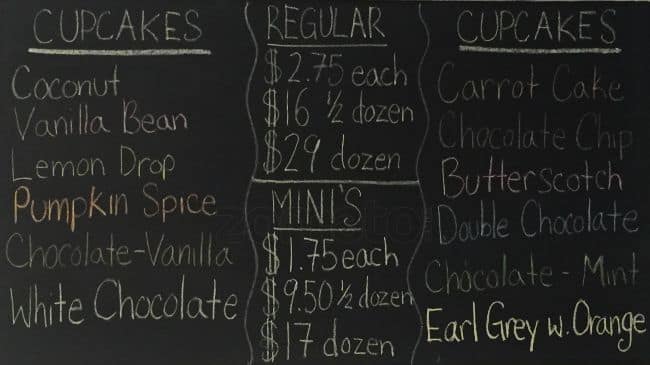 CUPCAKES
Coconut
Vanilla Bean
Lemon Drop
Pumpkin Spice
Chocolate-Vanilla
White Chocolate
REGULAR
$2.75 each
$16 1/2 dozen
$29 dozen
MINI'S
$1.75 each
$9.50 1/2 dozen
$17 dozen
CUPCAKES
Carrot Cake
Chocolate Chip
Butterscotch
Double Chocolate
Chocolate - Mint
Earl Grey w. Orange